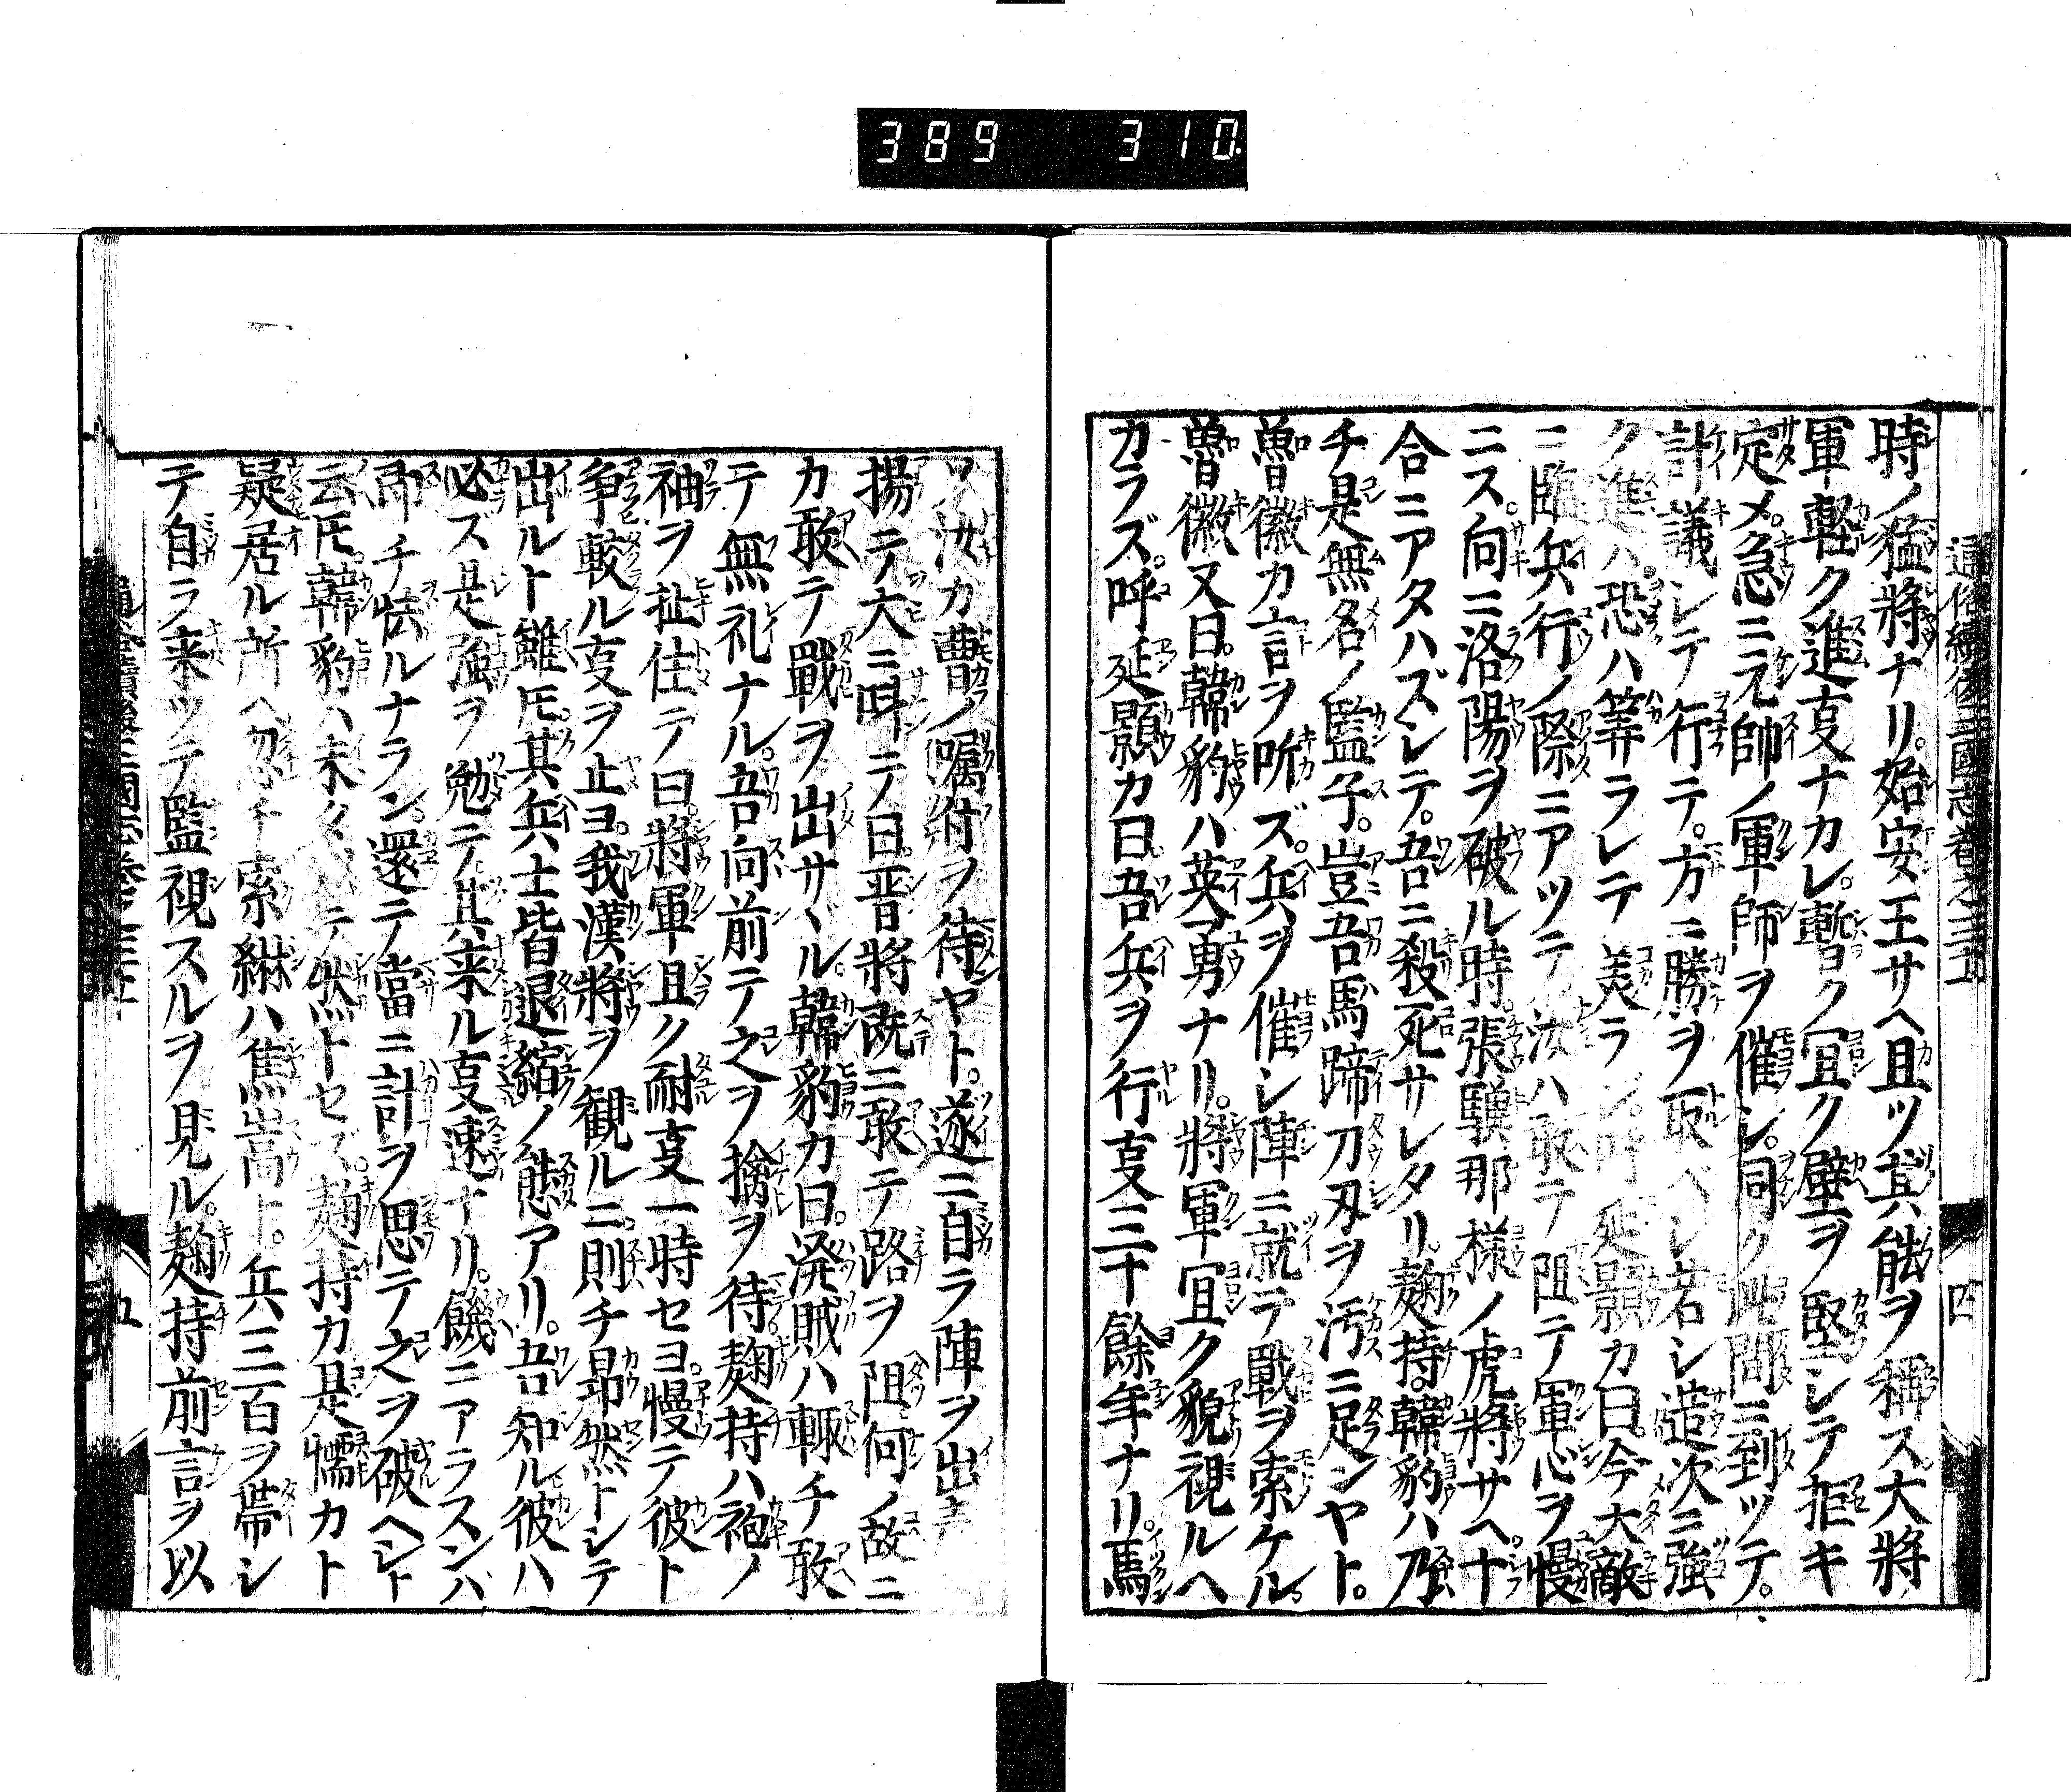 389 310
通俗續後三國志卷之三五
四
時ノ猛將ナリ。始安王サヘ且ツ其能ヲ稱ス。大將
軍軽ク進ム叓ナカレ。暫ク冝ク壁ヲ堅シテ拒キ
定メ。急ニ元帥ノ軍師ヲ催シ。同ク此間ニ到ツテ。
計議シテ行テ。方ニ勝ヲ取ベシ若シ造次ニ強
ク進ハ恐ハ筭ラレテ美ラン。呼延顥カ曰。今大敵
ニ臨兵行ノ際ニアツテ汝ハ敢テ阻テ軍心ヲ慢
ニス。向ニ洛陽ヲ破ル時。張驥那様ノ虎將サヘ十
合ニアタハズシテ。吾ニ殺死サレタリ。麹持。韓豹ハ乃
チ是無名ノ監子。豈吾馬蹄刀刄ヲ汚ニ足ンヤト。
魯徽カ言ヲ听ズ。兵ヲ催シ陣ニ就テ戰ヲ索ケル。
魯徽又曰。韓豹ハ英勇ナリ。將軍冝ク貌視ルヘ
カラズ。呼延顥カ曰。吾兵ヲ行叓三十餘年ナリ。馬
ソ汝カ曹ノ嘱付ヲ待ヤト。遂ニ自ラ陣ヲ出
揚テ大ニ呌テ曰。晋將既ニ敢テ路ヲ阻何ノ故ニ
カ敢テ戰ヲ出サヾル。韓豹カ曰。溌賊ハ輙チ敢
テ無礼ナル。吾向前テ之ヲ擒ヲ待。麹持ハ袍ノ
袖ヲ扯住テ曰。將軍且ク耐叓一時セヨ。慢テ彼ト
爭較ル叓ヲ止ヨ。我漢將ヲ観ルニ。則チ昂然トシテ
出ルト雖𪜈。其兵士皆退縮ノ態アリ。吾知ル彼ハ
必ズ是強ヲ勉テ其来ル叓速ナリ。饑ニアラスンハ
即チ怯ルナラン。還テ當ニ計ヲ思テ之ヲ破ヘシト
云𪜈。韓豹ハ未タ テ然トセズ。麹持カ是懦カト
疑居ル所ヘ忽チ索綝ハ焦嵩ト。兵三百ヲ帯シ
テ自ラ来ツテ監視スルヲ見ル。麹持前言ヲ以
五